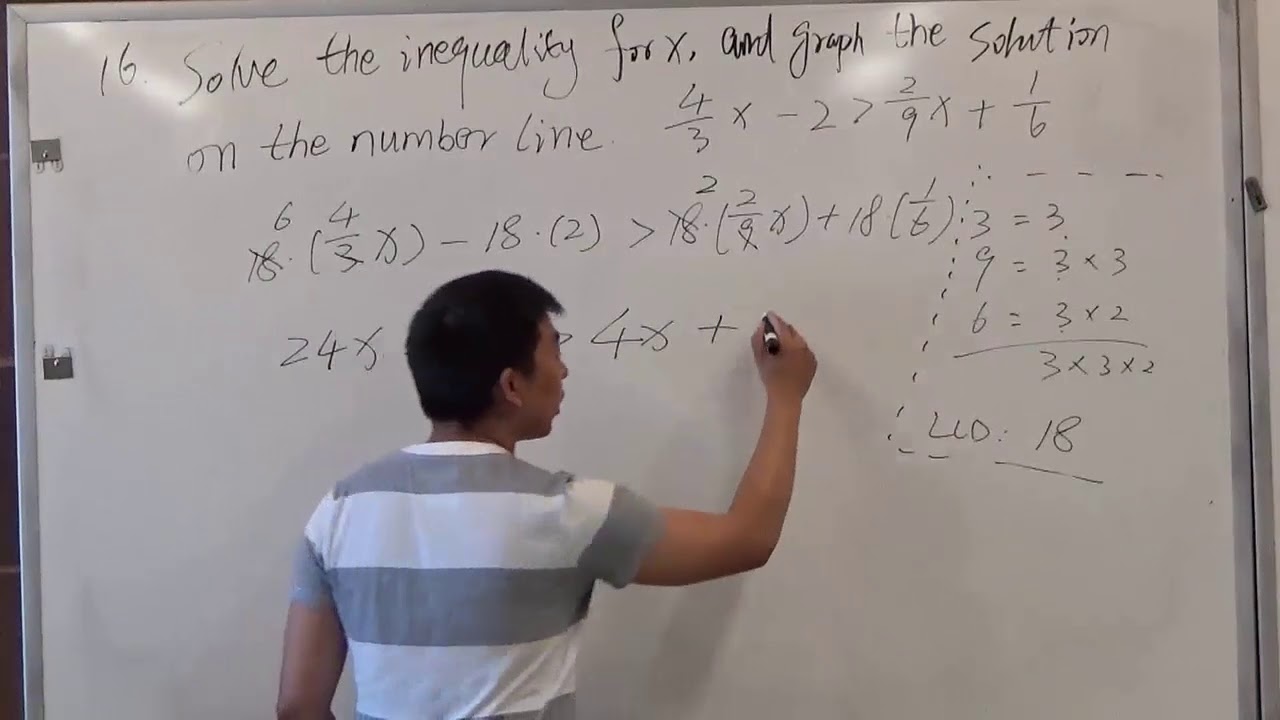 16. Solve the inequality for x, and graph the solution
on the number line. 4/3 x - 2 > 2/9 x + 1/6
6 2
18·(4/3 x) - 18·(2) > 18·(2/9 x) + 18(1/6)
24x > 4x +
3 = 3
9 = 3 × 3
6 = 3 × 2
3 × 3 × 2
LCD: 18